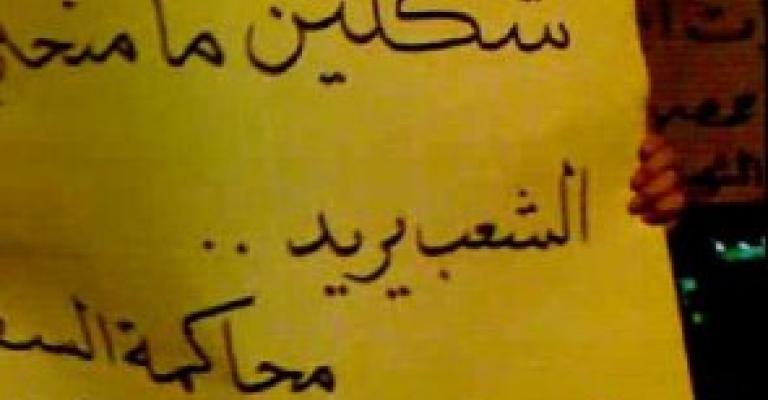 شكلين ما منخا
الشعب يريد ..
محاكمة السف
مصر